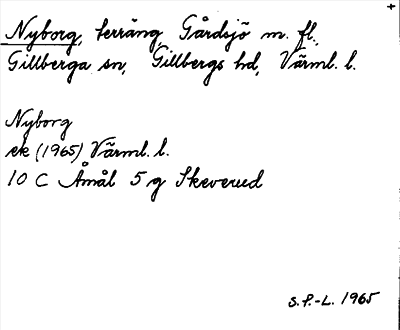 Nyborg, terräng Gårdsjö m. fl.,
Gillberga sn, Gillbergs hd, Värml. l.
Nyborg
ek (1965) Värml. l.
10 C Åmål 5 g Skeverud
S.P.-L. 1965